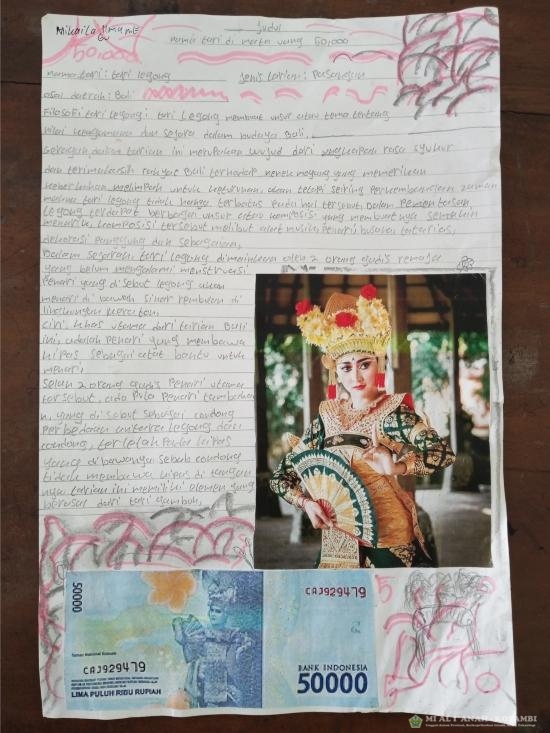 Mikaila
Judul
50,000
nama tari di mata uang 50,000
nama tari: tari legong
Jenis tarian: Pasangan
asal daerah: Bali
Filosofi tari legong: tari Legong memuat unsur atau tema tentang
nilai keagamaan dan sejarah dalam budaya Bali.
Gerakan dalam tarian ini merupakan wujud dari ungkapan rasa syukur
dan terimakasih rakyat Bali terhadap nenek moyang yang memerikan
keberkahan melimpah untuk keturunan. akan tetapi seiring Perkembangan zaman
makna tari legong tidak hanya terbatas Pada hal tersebut, Dalam Pementasan,
Legong terdapat berbagai unsur atau komposisi yang membuatnya semakin
menarik, komposisi tersebut meliputi alat musik, Penari, busana, tata rias,
dekorasi Panggung dan sebagainya.
Dalam sejarah, tari legong dimainkan oleh 2 orang gadis remaja
yang belum mengalami menstruasi
Penari yang di sebut legong akan
menari di bawah sinar rembulan di
lingkungan keraton.
Ciri khas utama dari tarian Bali
ini, adalah Penari yang membawa
kipas sebagai alat bantu untuk
menari
Selain 2 orang gadis Penari utama
tersebut, ada Pula Penari tambaha
n, yang di sebut sebagai condong
Perbedaan antara legong dan
condong, terletak Pada kipas
yang dibawanya sebab condong
tidak membawa kipas di tangan
nya tarian ini memiliki elemen yang
berasal dari tari gambuh.
50000
Taman Nasional Komodo
CAJ929479
LIMA PULUH RIBU RUPIAH
CAJ929479
BANK INDONESIA
50000
5